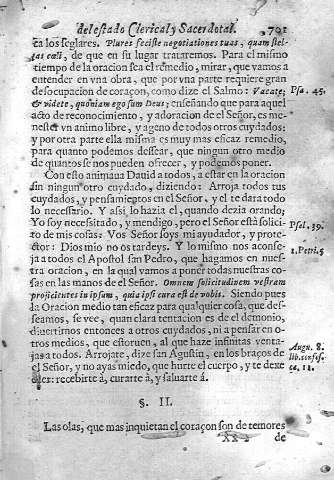 del estado Clerical, y Sacerdotal. 701
ca los seglares. Plures fecisti negotiationes tuas, quam stel-
las cœli, de que en su lugar trataremos. Para el mismo
tiempo de la oracion sea el remedio, mirar, que vamos a
entender en vna obra, que por vna parte requiere gran
desocupacion de coraçon, como dize el Salmo: Vacate, Psa. 45.
& videte, quoniam ego sum Deus; enseñando que para aquel
acto de reconocimiento, y adoracion de el Señor, es me-
nester vn animo libre, y ageno de todos otros cuydados:
y por otra parte ella misma es muy mas eficaz remedio,
para quanto podemos dessear, que ningun otro medio
de quantos se nos pueden ofrecer, y podemos poner.
Con esto animaua Dauid a todos, a estar en la oracion
sin ningun otro cuydado, diziendo: Arroja todos tus
cuydados, y pensamientos en el Señor, y el te dara todo
lo necessario. Y assi lo hazia el, quando dezia orando:
Yo soy necessitado, y mendigo, pero el Señor està solici- Psal. 39.
to de mis cosas. Vos Señor sois mi ayudador, y prote-
ctor: Dios mio no os tardeys. Y lo mismo nos aconse-
ja a todos el Apostol san Pedro, que hagamos en nues- 1. Petri. 5
tra oracion, en la qual vamos a poner todas nuestras co-
sas en las manos de el Señor. Omnem solicitudinem vestram
proijcientes in ipsum, quia ipsi cura est de vobis. Siendo pues
la Oracion medio tan eficaz para qualquier cosa, que de-
sseamos, se vee, quan clara tentacion es de el demonio,
diuertirnos entonces a otros cuydados, ni a pensar en o-
tros medios, que estoruen, al que haze infinitas venta-
jas a todos. Arrojate, dize san Agustin, en los braços de Augu. 8.
el Señor, y no ayas miedo, que hurte el cuerpo, y te dexe lib. confes.
caer: recebirte à, curarte à, y saluarte à. ca. 11.
§. II.
Las olas, que mas inquietan el coraçon son de temores
de